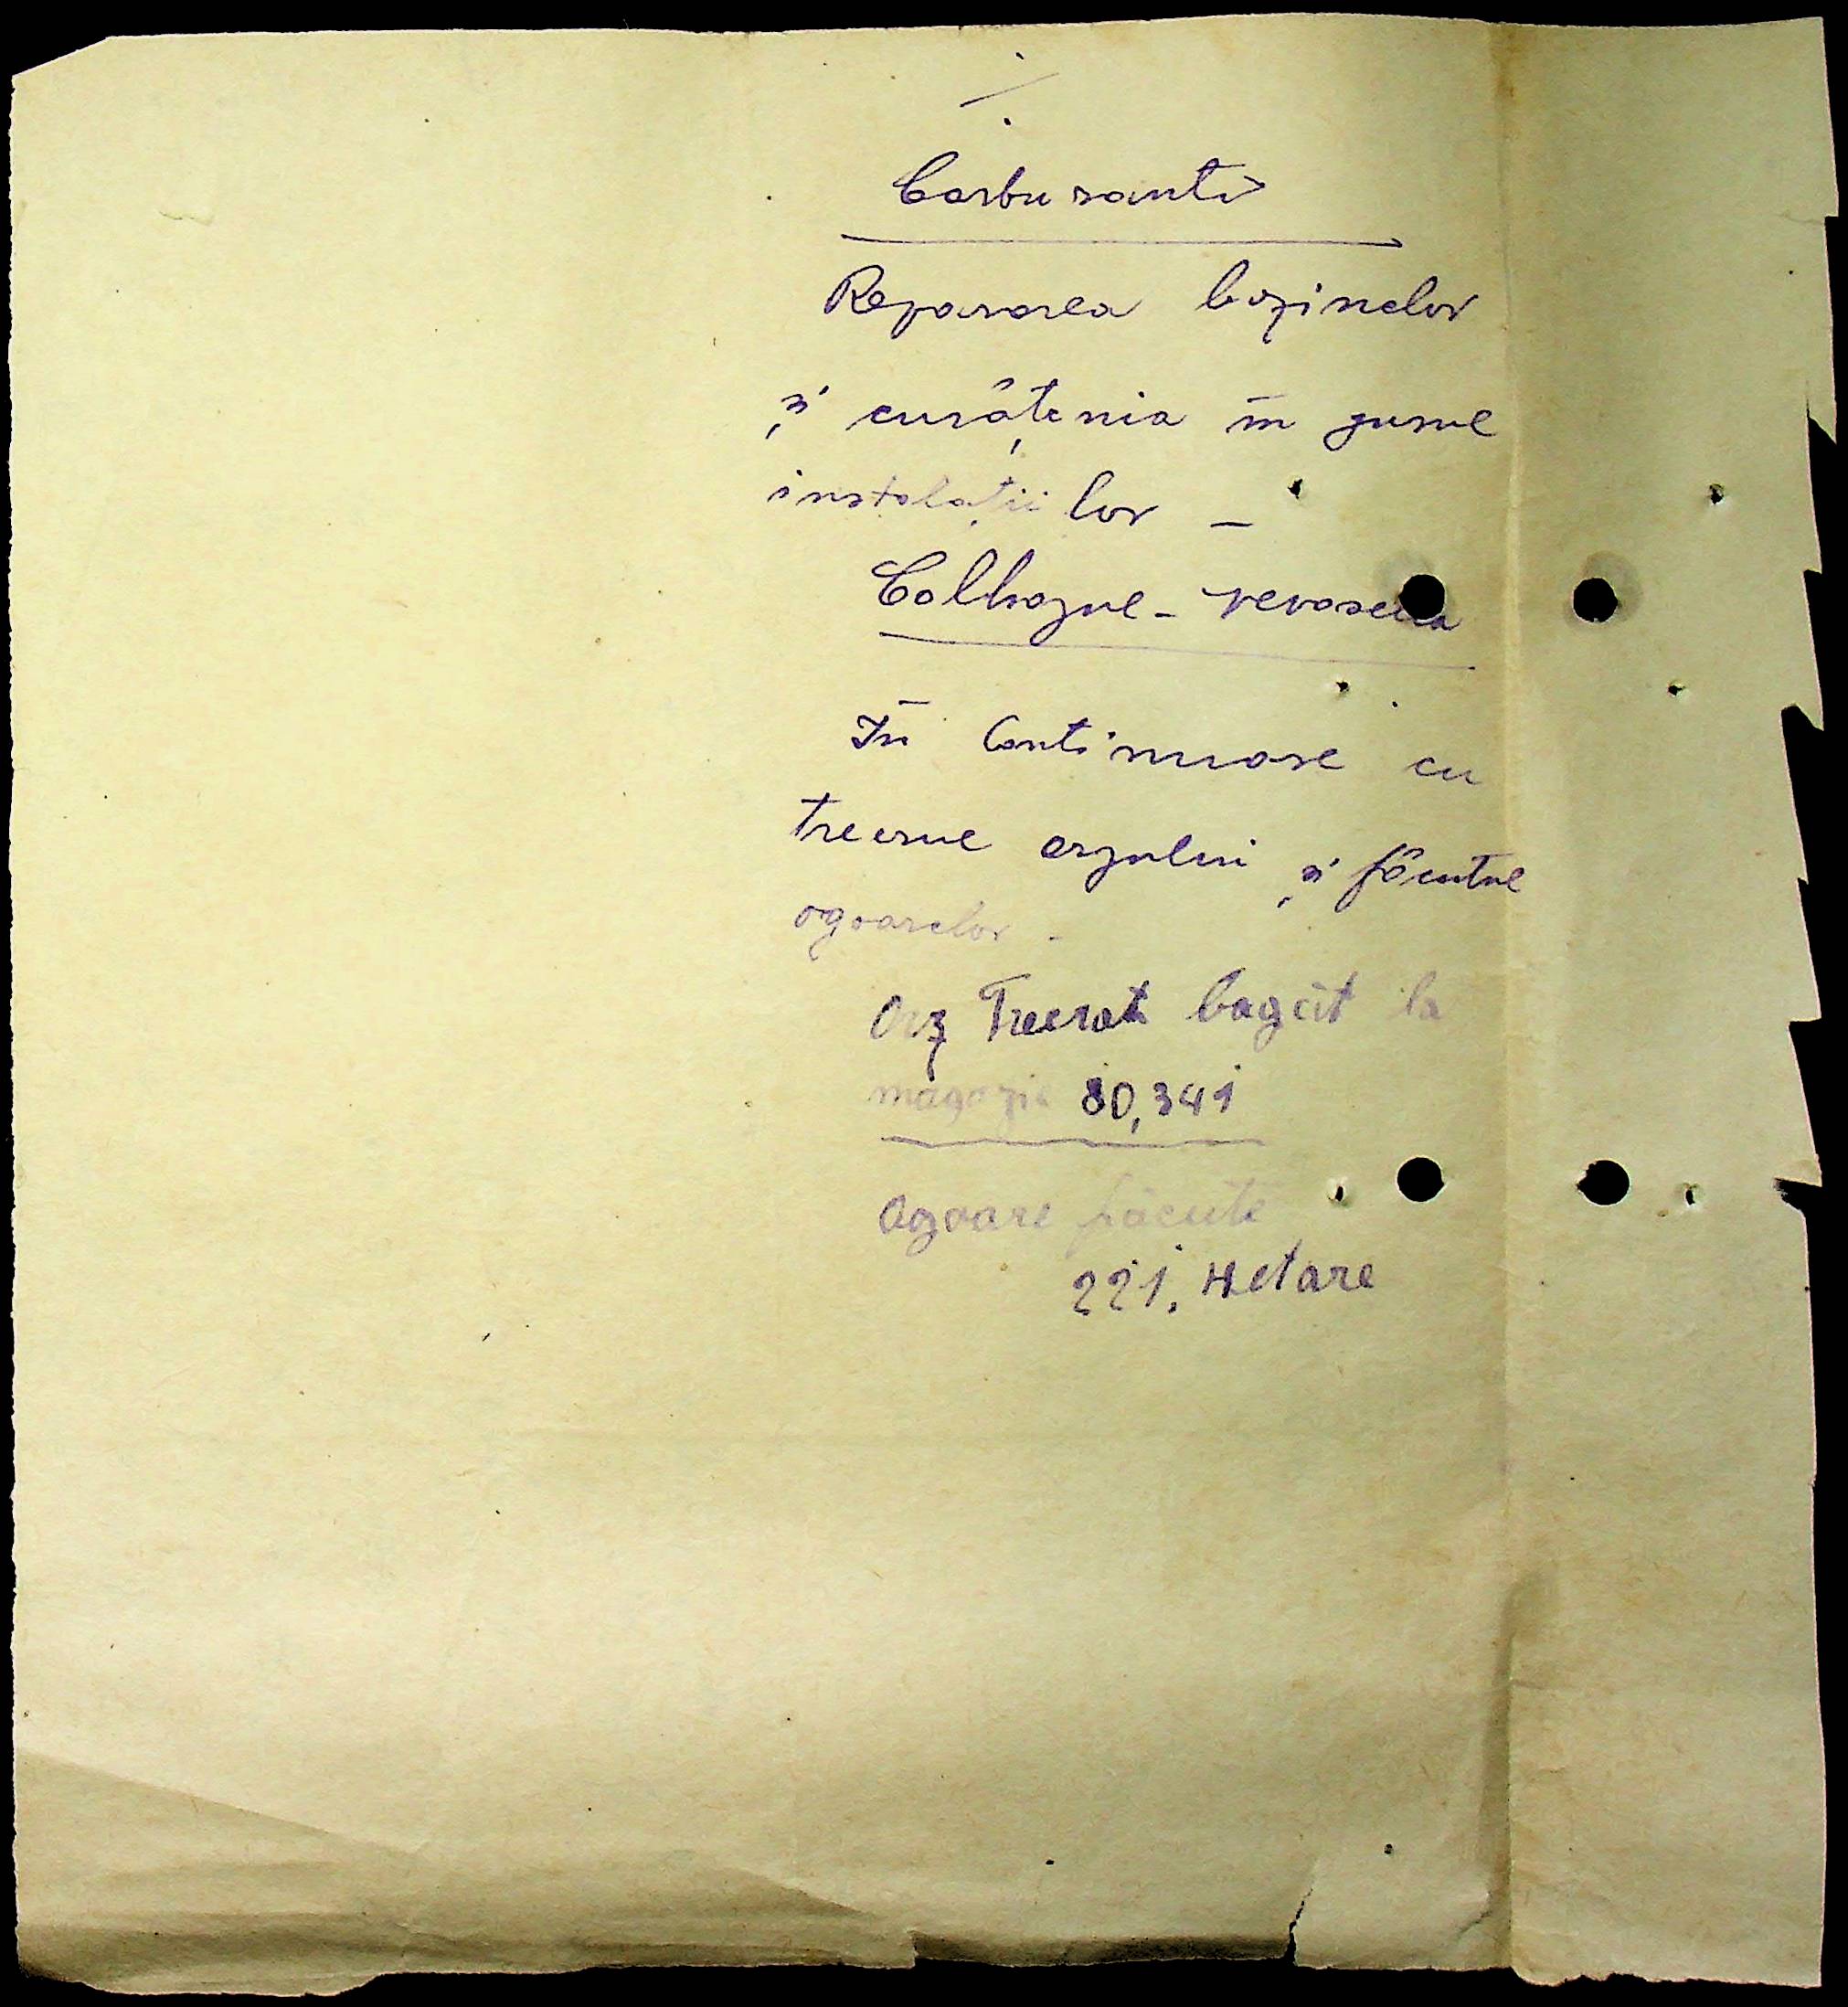 Carburanti
Repararea bazinelor
și curățenia în jurul
instalațiilor –
Colhozul -
În Continuare cu
treerul orzului și făcutul
ogoarelor -
Orz Treerat bagat la
magazie 80,341
Ogoare făcute
221. Hetare